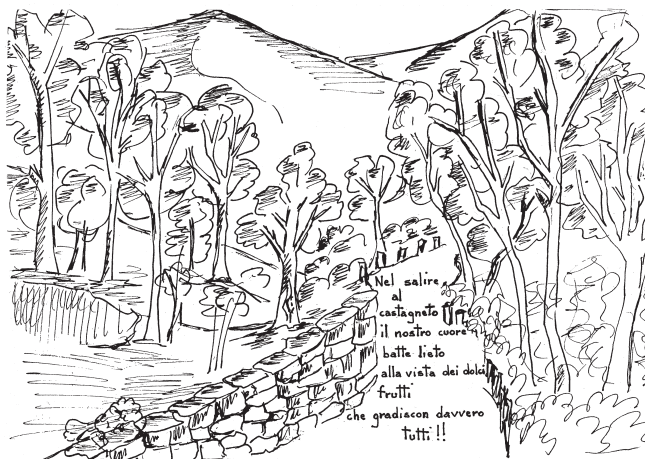 Nel salire
al
castagneto
il nostro cuore
batte lieto
alla vista dei dolci
frutti
che gradiscon davvero
tutti!!